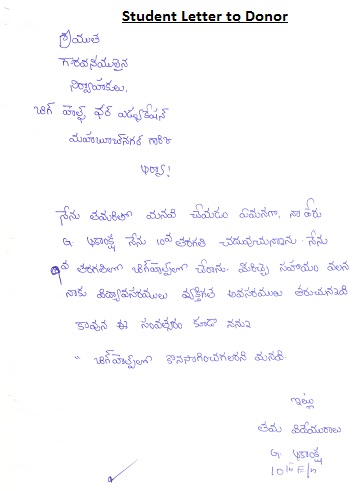 Student Letter to Donor
శ్రీయుత
గౌరవనీయులైన
నిర్వాహకులు,
బిగ్ హెల్ప్ ఫర్ ఎడ్యుకేషన్
మహబూబ్‌నగర్ గారికి
ఆర్యా!
నేను తమరితో మనవి చేయడం ఏమనగా, నా పేరు
G. నేను 10వ తరగతి చదువుచున్నాను. నేను
9వ తరగతిలో బిగ్‌హెల్ప్‌లో చేరాను. మీరిచ్చే సహాయం వలన
నాకు విద్యావసరములు వ్యక్తిగత అవసరములు తీరుచున్నవి
కావున ఈ సంవత్సరం కూడా నన్ను
" బిగ్‌హెల్ప్‌లో కొనసాగించగలరని మనవి.
ఇట్లు
తమ విధేయురాలు
G.
10th E/M